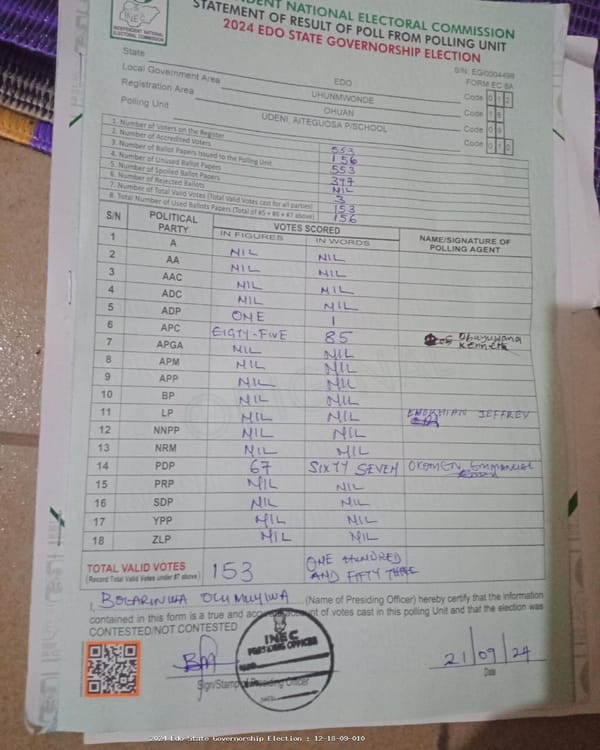 INEC
INDEPENDENT NATIONAL ELECTORAL COMMISSION
ENT NATIONAL ELECTORAL COMMISSION
STATEMENT OF RESULT OF POLL FROM POLLING UNIT
2024 EDO STATE GOVERNORSHIP ELECTION
S/N: EG/0004498
FORM EC 8A
State EDO Code 0 1 2
Local Government Area UHUNMWONDE Code 1 8
Registration Area OHUAN Code 0 9
Polling Unit UDENI, AITEGUOSA P/SCHOOL Code 0 1 0
1. Number of Voters on the Register 553
2. Number of Accredited Voters 156
3. Number of Ballot Papers Issued to the Polling Unit 553
4. Number of Unused Ballot Papers 397
5. Number of Spoiled Ballot Papers NIL
6. Number of Rejected Ballots 3
7. Number of Total Valid Votes (Total Valid Votes cast for all parties) 153
8. Total Number of Used Ballots Papers (Total of #5 + #6 + #7 above) 156
S/N POLITICAL PARTY VOTES SCORED NAME/SIGNATURE OF POLLING AGENT
IN FIGURES IN WORDS
1 A NIL NIL
2 AA NIL NIL
3 AAC NIL NIL
4 ADC NIL NIL
5 ADP ONE 1
6 APC EIGTY-FIVE 85 Kenneth
7 APGA NIL NIL
8 APM NIL NIL
9 APP NIL NIL
10 BP NIL NIL
11 LP NIL NIL JEFFREY
12 NNPP NIL NIL
13 NRM NIL NIL
14 PDP 67 SIXTY SEVEN Emmanuel
15 PRP NIL NIL
16 SDP NIL NIL
17 YPP NIL NIL
18 ZLP NIL NIL
TOTAL VALID VOTES 153 ONE HUNDRED
(Record Total Valid Votes under #7 above) AND FIFTY THREE
I, BOLARINWA OLUMUYIWA (Name of Presiding Officer) hereby certify that the information
contained in this form is a true and accurate account of votes cast in this polling Unit and that the election was
CONTESTED/NOT CONTESTED
INEC
PRESIDING OFFICER
NAME
DATE
21/09/24
Sign/Stamp of Presiding Officer Date
2024 Edo State Governorship Election : 12-18-09-010